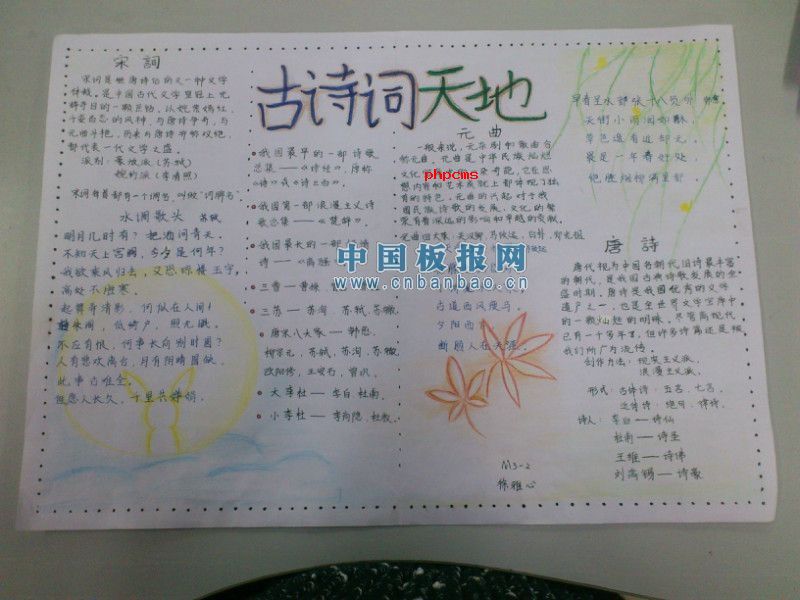 古诗词天地
宋词
宋词是继唐诗后的又一种文学
体裁,是中国古代文学皇冠上光
与唐诗争奇,与
元曲斗艳,历来与唐诗并称双绝,
都代表一代文学之盛。
派别:豪放派(苏轼)
婉约派(李清照)
宋词每首都有一个调名,叫做“词牌名”
水调歌头 苏轼
明月几时有?把酒问青天。
不知天上宫阙,今夕是何年?
我欲乘风归去,又恐琼楼玉宇,
高处不胜寒。
起舞弄清影,何似在人间!
转朱阁,低绮户,照无眠。
不应有恨,何事长向别时圆?
人有悲欢离合,月有阴晴圆缺,
此事古难全。
但愿人长久,千里共婵娟。
我国最早的一部诗歌
总集——《诗经》,原称
《诗》或《诗三百》。
我国第一部浪漫主义诗
歌总集——《楚辞》。
我国最长的一部
诗——《离骚
三曹——曹操
三苏——苏洵,苏轼,苏辙
唐宋八大家——韩愈,
柳宗元,苏轼,苏洵,苏辙,
欧阳修,王安石,曾巩。
大李杜——李白 杜甫。
小李杜——李商隐,杜牧。
元曲
一般来说,元杂剧和散曲合
称元曲,元曲是中华民族灿烂
文化
想内容和艺术成就上都体现了独
有的特色,元曲的兴起对于我
国民族诗歌的发展、文化的繁
荣有着深远的影响和卓越的贡献。
元曲四大家:关汉卿、马致远、白朴、郑光祖
古道西风瘦马。
夕阳西
断肠人在天涯。
早春呈水部张十八员外 韩愈
天街小雨润如酥,
草色遥看近却无。
最是一年春好处,
绝胜烟柳满皇都
唐诗
唐代被视为中国各朝代旧诗最丰富
的朝代,是我国古典诗歌发展的全
盛时期。唐诗是我国优秀的文学
遗产之一,也是全世界文学宝库中
的一颗灿烂的明珠。尽管离现代
已有一千多年了,但许多诗篇还是被
我们所广为流传。
创作方法:现实主义派,
浪漫主义派。
形式:古体诗:五言,七言。
近体诗:绝句,律诗。
诗人:李白——诗仙
杜甫——诗圣
王维——诗佛
刘禹锡——诗豪
M3-2
徐雅心
phpcms
中国板报网
www.cnbanbao.cn